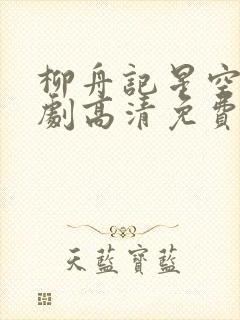 柳舟記星空
劇高清免費
天藍寶藍